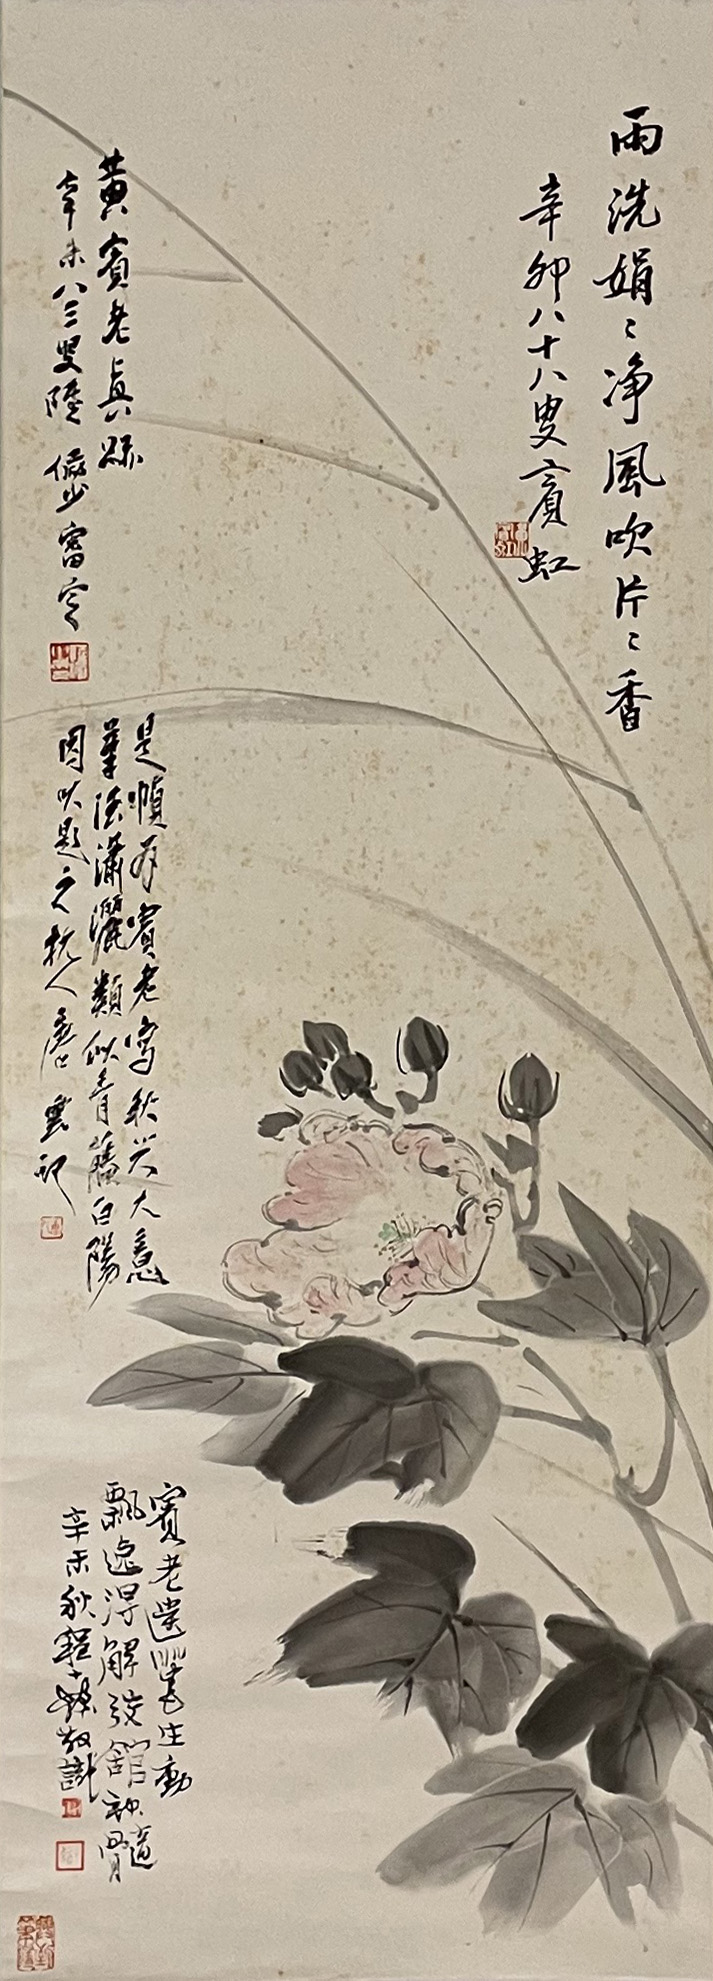 雨洗娟〻净風吹片〻香
辛卯八十八叟賓虹
黃賓老真跡
辛未八三叟陸儼少審定
是幀為賓老寫秋㒷大意
筆法瀟灑類似青藤白陽
因以題之杭人唐雲記
賓老遺筆生動
飄逸得解弢館神髓
辛未秋程十髮敬識